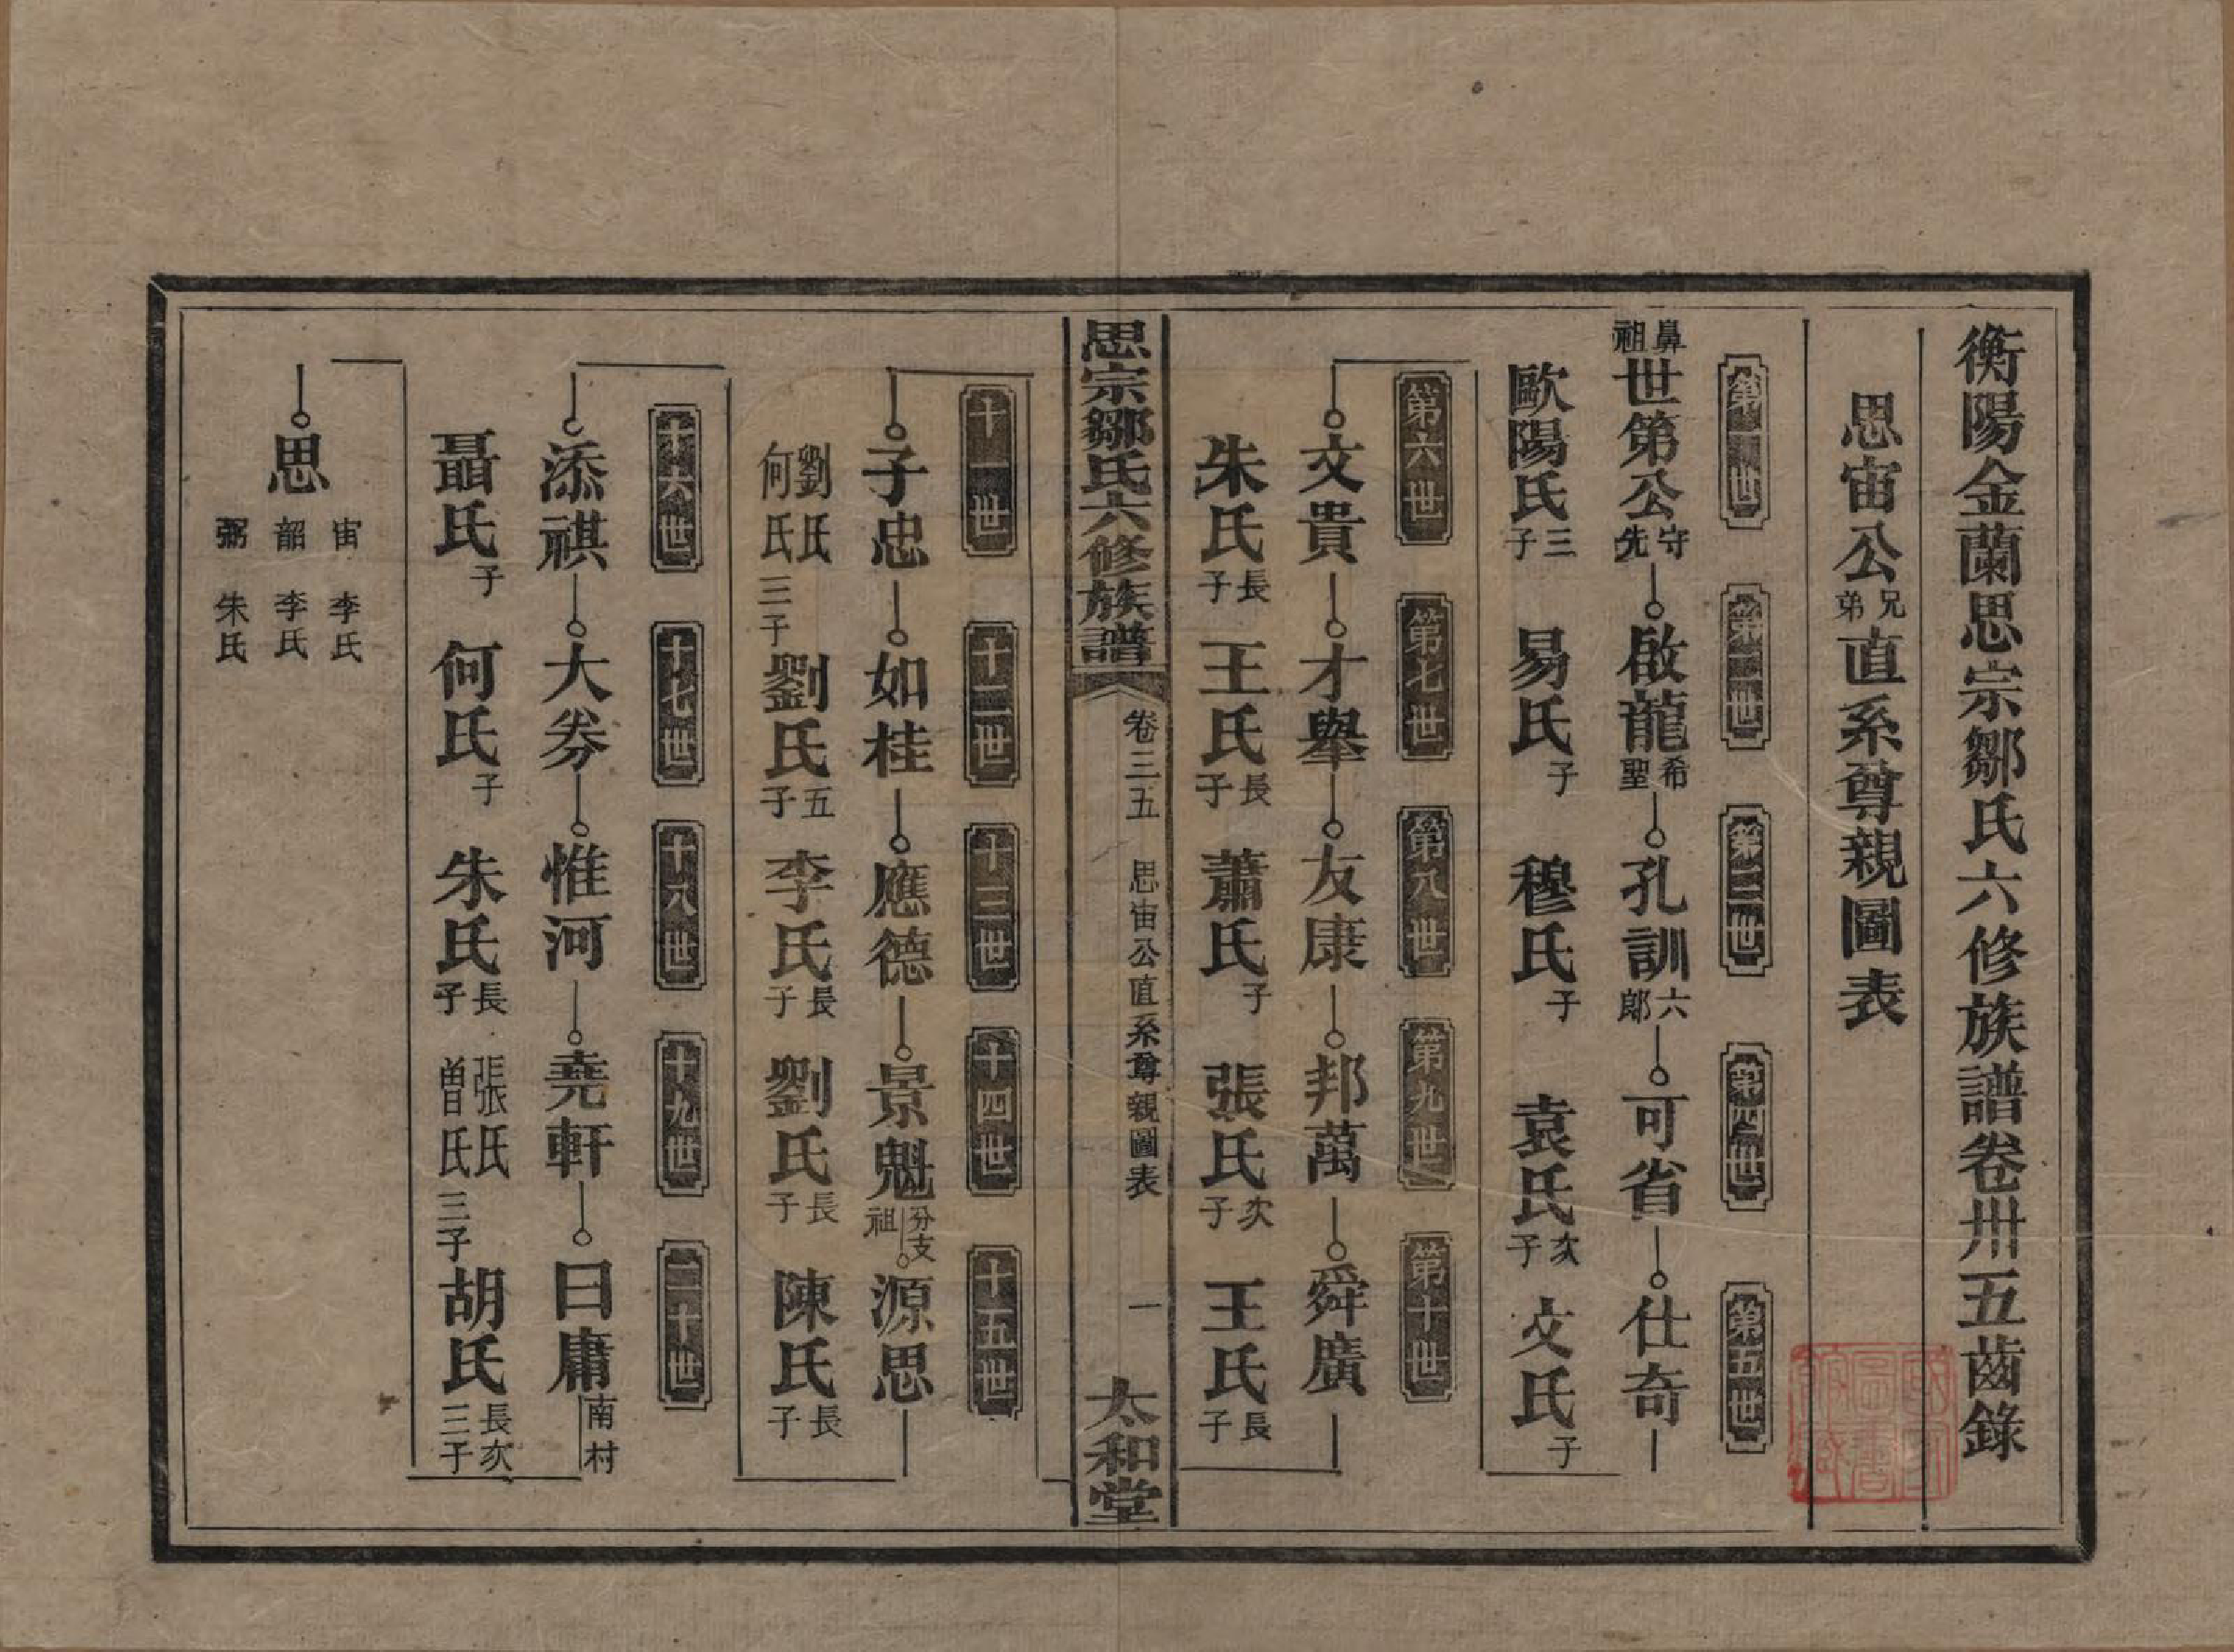 衡陽金蘭思宗鄒氏六修族譜卷卅五齒錄
思宙公兄弟直系尊親圖表
第一世 第二世 第三世 第四世 第五世
鼻祖世第公守先 啟龍希聖 孔訓六郎 可省 仕奇
歐陽氏三子 易氏子 穆氏子 袁氏次子 文氏子
第六世 第七世 第八世 第九世 第十世
文貴 才舉 友康 邦萬 舜廣
朱氏長子 王氏長子 蕭氏子 張氏次子 王氏長子
思宗鄒氏六修族譜 卷三五 思宙公直系尊親圖表 一 太和堂
十一世 十二世 十三世 十四世 十五世
子忠 如桂 應德 景魁分支祖 源思
劉氏何氏三子 劉氏五子 李氏長子 劉氏長子 陳氏長子
十六世 十七世 十八世 十九世 二十世
添祺 大券 惟河 堯軒 曰庸南村
聶氏子 何氏子 朱氏長子 張氏曾氏三子 胡氏長次三子
思
宙 李氏
韶 李氏
弼 朱氏